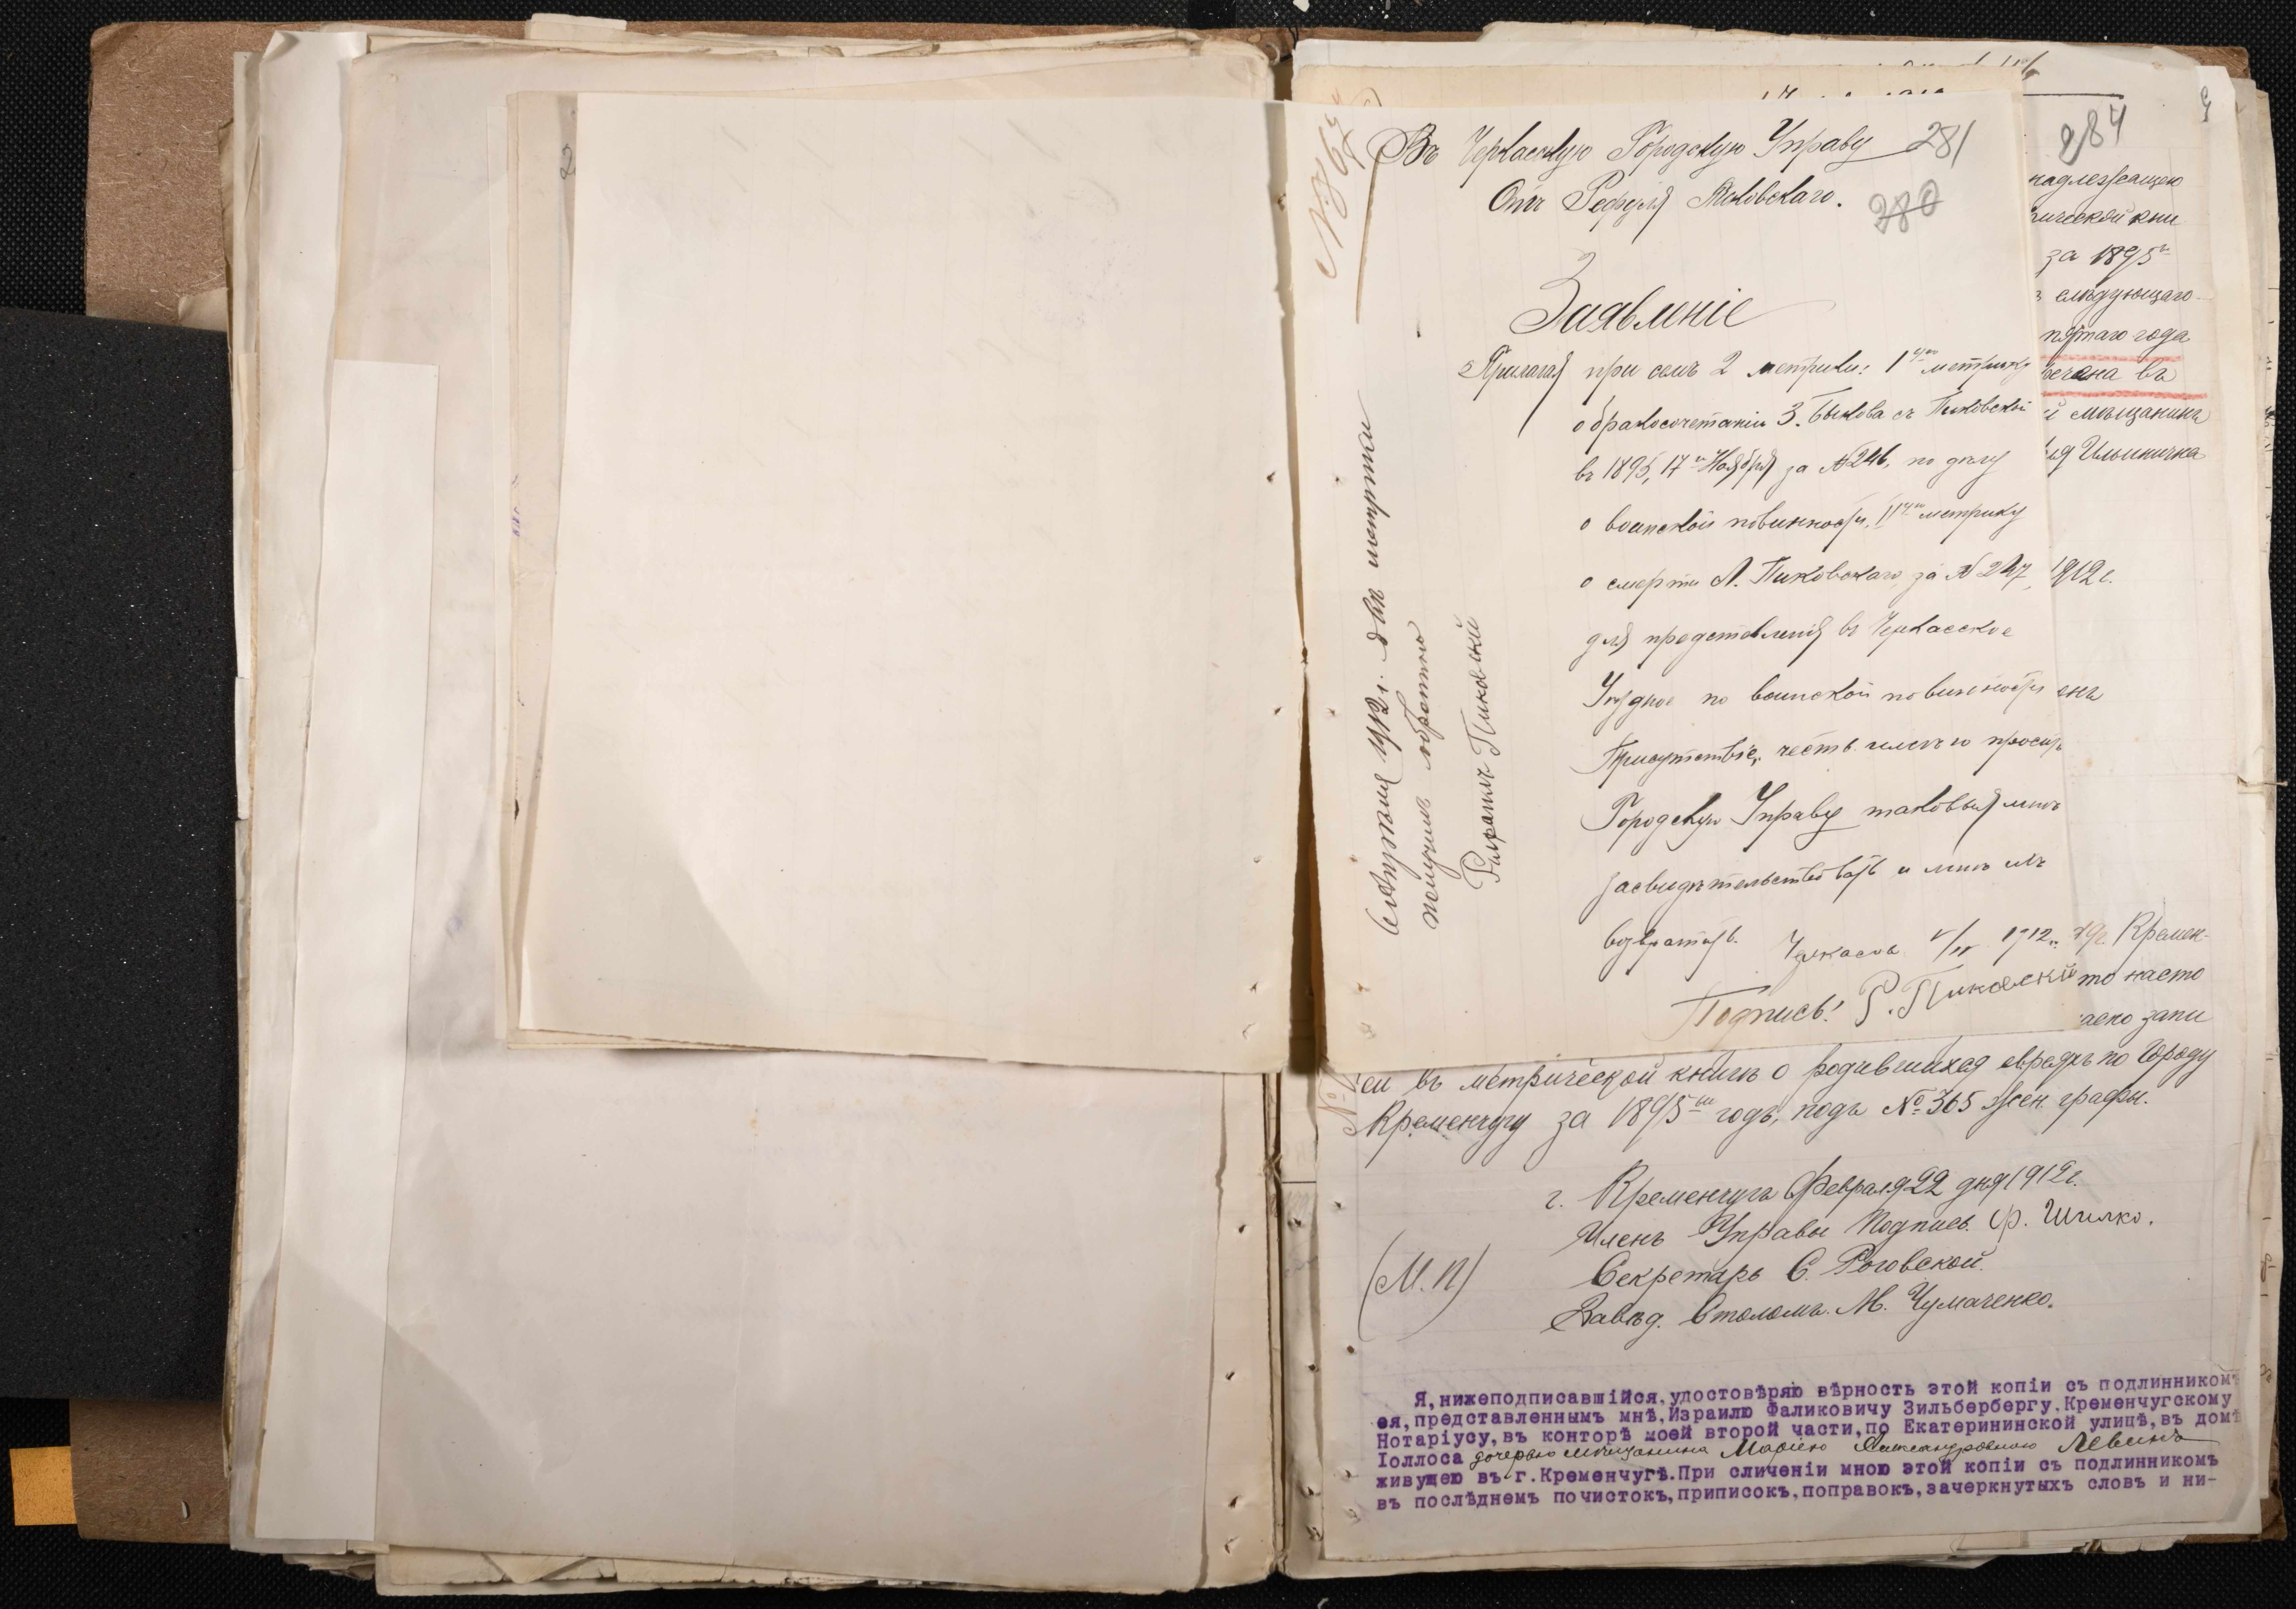 Въ Черкасскую Городскую Управу 281
Отъ Рефуля Пиковскаго.
280
Заявленіе
Прилагая при семъ 2 метрики: 1ую метрику
о бракосочетаніи З. Быкова съ Пиковской
въ 1895, 17го Ноября за №246, по делу
о воинской повинности, 11ую метрику
о смерти Л. Пиковскаго за № 247, 1912 г.
для представленія въ Черкасское
Уездное по воинской повинности
Присутствіе, честь имею просить
Городскую Управу таковыя мнѣ
засвидѣтельствовать и мнѣ ихъ
возвратить. Черкассы 1912 г.
Подпись: Р. Пиковскій
1912 г. двѣ метрики
получилъ обратно
Пиковскій
284
надлежащею
рической кни
за 1895
слѣдующаго
пятаго года
мѣщанина
Ильинична
Кремен-
то насто
запи
си въ метрической книгѣ о родившихся евреяхъ по городу
Кременчугу за 1895й годъ, подъ № 365 жен. графы.
г. Кременчугъ Февраля 22 дня 1912 г.
Членъ Управы Подпись. Ф. Шилко.
(М.П) Секретарь С. Роговской.
Завѣд. Столомъ. М. Чумаченко.
Я, нижеподписавшійся, удостовѣряю вѣрность этой копіи съ подлинникомъ
ея, представленнымъ мнѣ, Израилю Фаликовичу Зильбербергу, Кременчугскому
Нотаріусу, въ конторѣ моей второй части, по Екатерининской улицѣ, въ домѣ
Іоллоса дочерью мѣщанина Маріею Александровною Левинъ
живущею въ г.Кременчугѣ.При сличеніи мною этой копіи съ подлинникомъ
въ послѣднемъ почистокъ,приписокъ,поправокъ,зачеркнутыхъ словъ и ни-